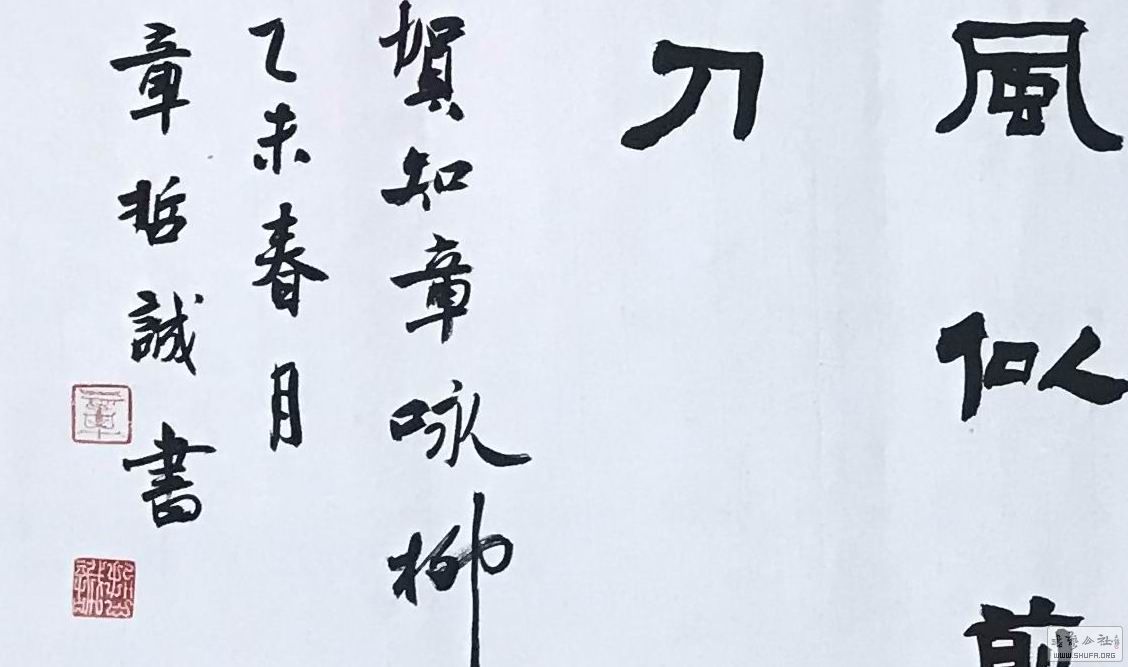 風似
刀
賀知章咏柳
乙未春月
章哲誠書
章
哲誠
公社
WWW.SHUFA.ORG